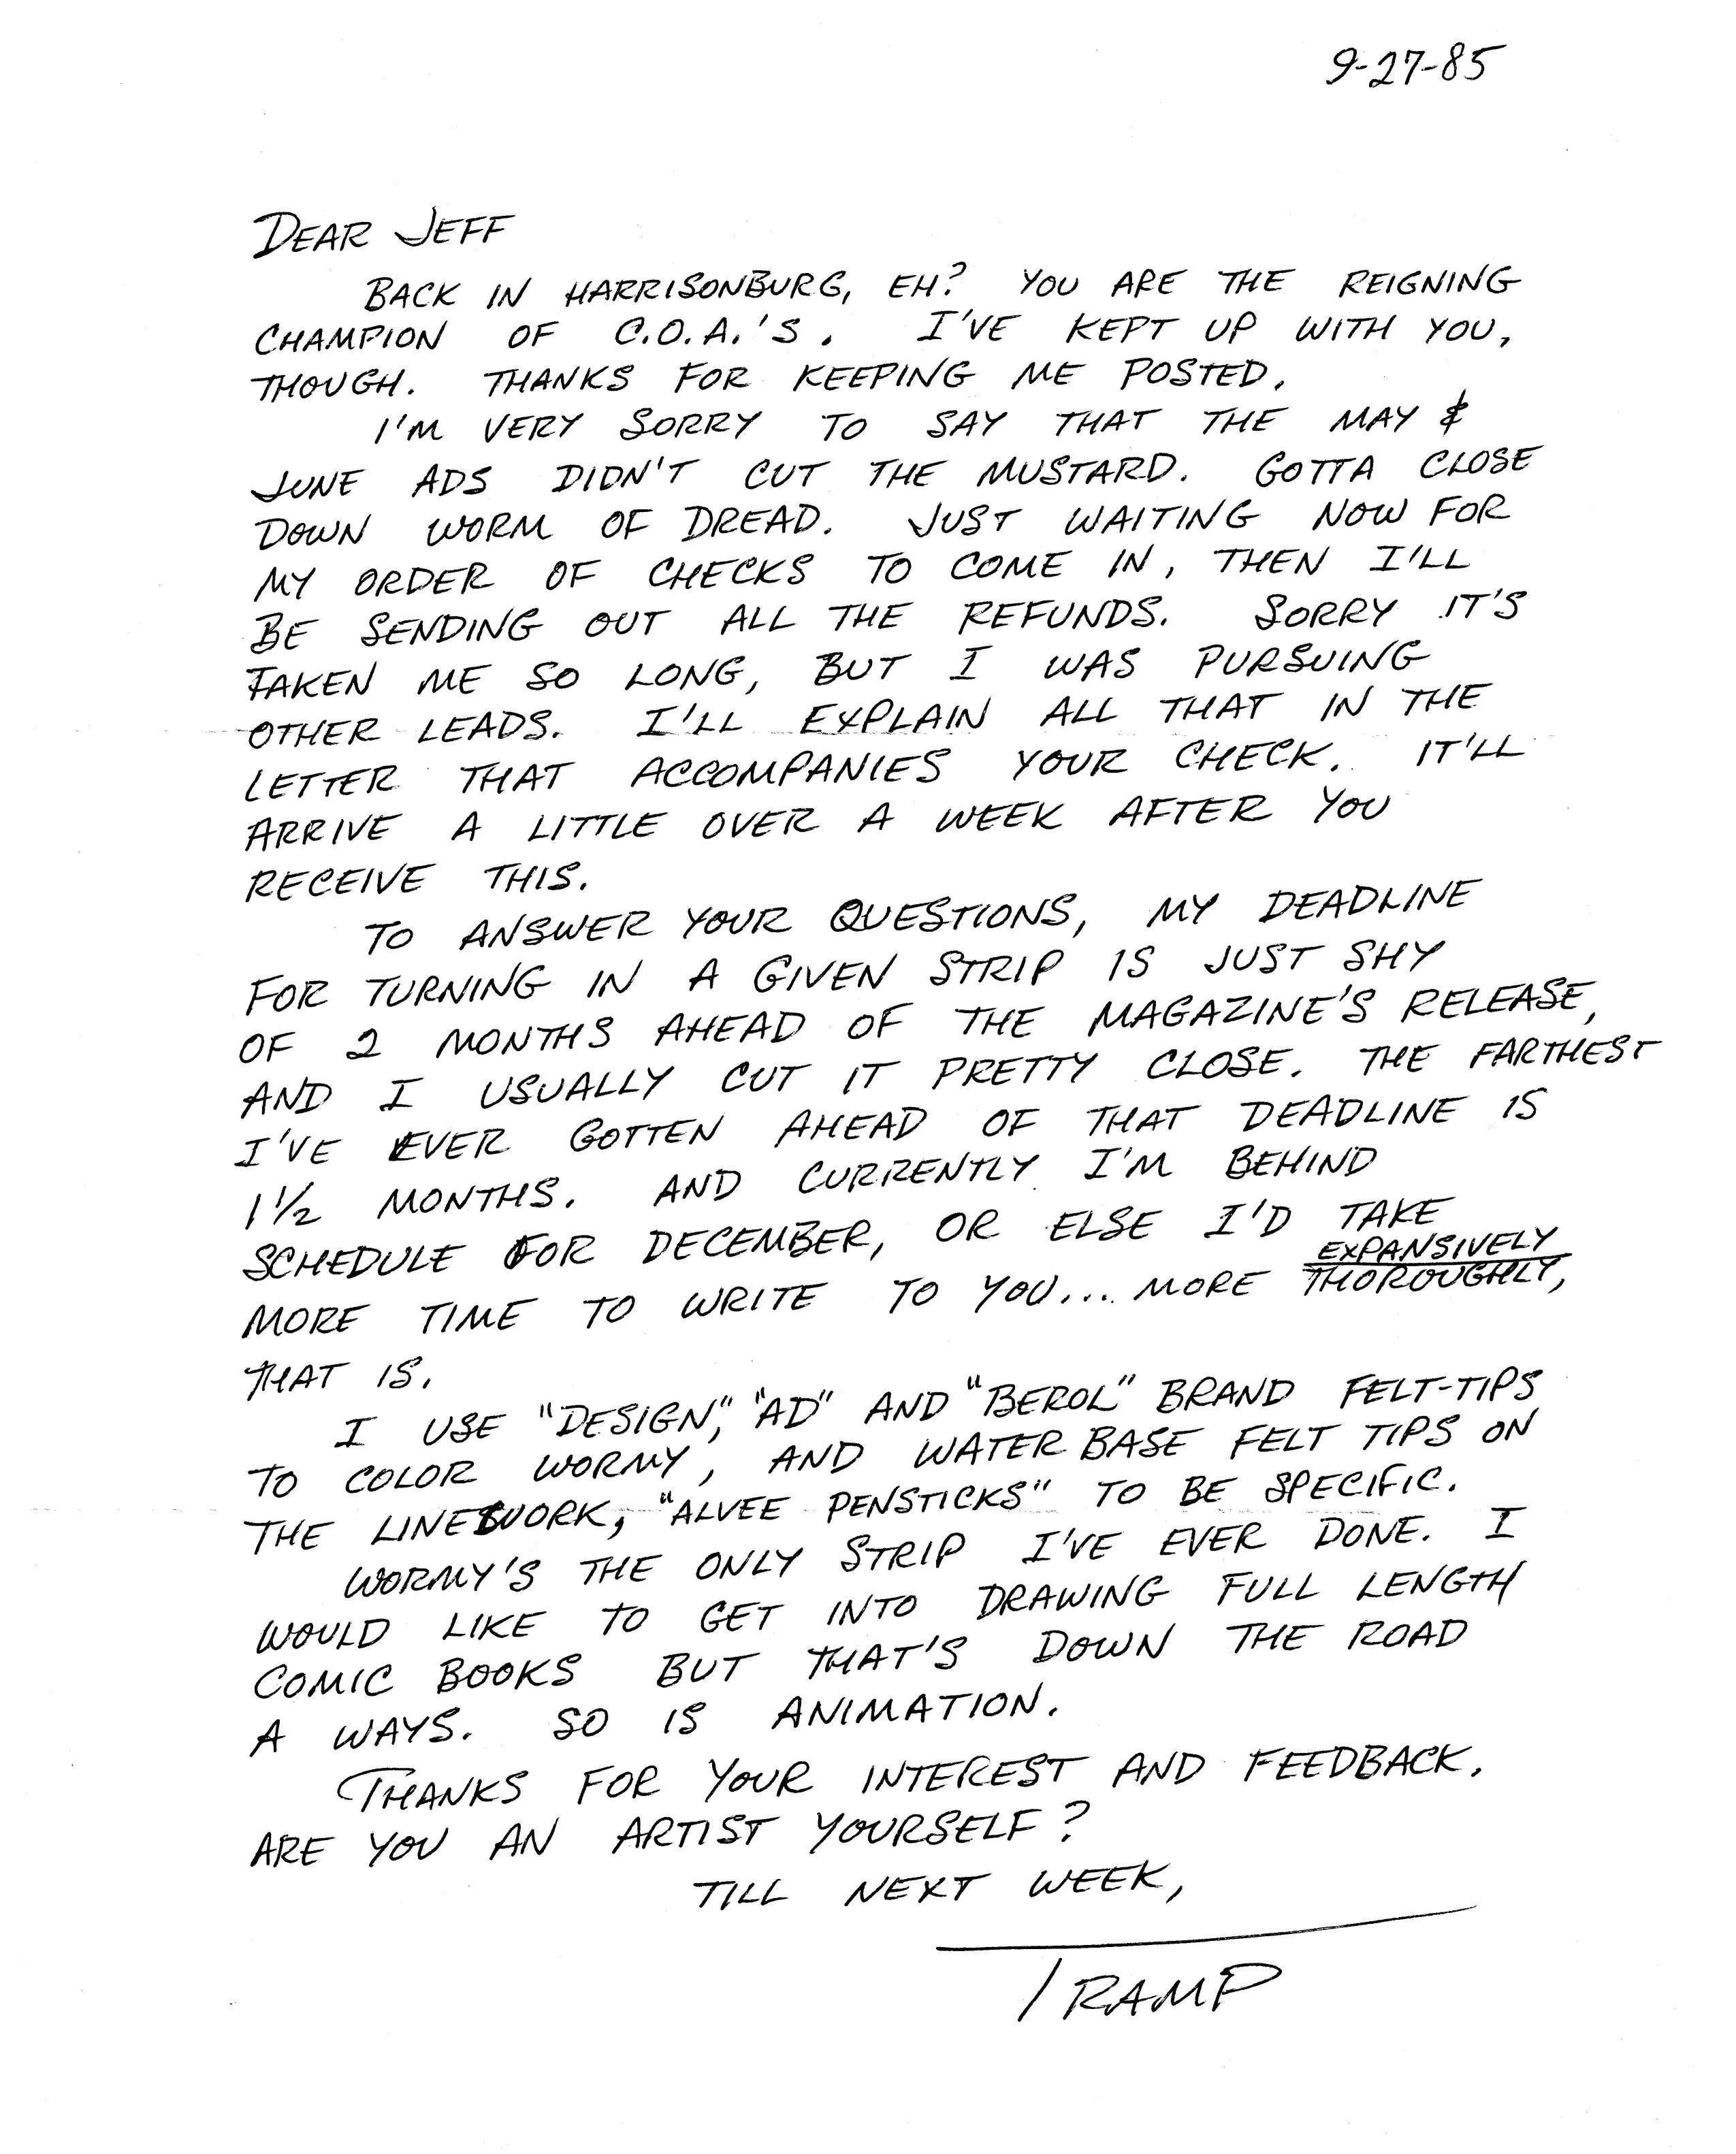 9-27-85
DEAR JEFF
BACK IN HARRISONBURG, EH? YOU ARE THE REIGNING
CHAMPION OF C.O.A.'S. I'VE KEPT UP WITH YOU,
THOUGH. THANKS FOR KEEPING ME POSTED.
I'M VERY SORRY TO SAY THAT THE MAY &
JUNE ADS DIDN'T CUT THE MUSTARD. GOTTA CLOSE
DOWN WORM OF DREAD. JUST WAITING NOW FOR
MY ORDER OF CHECKS TO COME IN, THEN I'LL
BE SENDING OUT ALL THE REFUNDS. SORRY IT'S
TAKEN ME SO LONG, BUT I WAS PURSUING
OTHER LEADS. I'LL EXPLAIN ALL THAT IN THE
LETTER THAT ACCOMPANIES YOUR CHECK. IT'LL
ARRIVE A LITTLE OVER A WEEK AFTER YOU
RECEIVE THIS.
TO ANSWER YOUR QUESTIONS, MY DEADLINE
FOR TURNING IN A GIVEN STRIP IS JUST SHY
OF 2 MONTHS AHEAD OF THE MAGAZINE'S RELEASE,
AND I USUALLY CUT IT PRETTY CLOSE. THE FARTHEST
I'VE EVER GOTTEN AHEAD OF THAT DEADLINE IS
1 1/2 MONTHS. AND CURRENTLY I'M BEHIND
SCHEDULE FOR DECEMBER, OR ELSE I'D TAKE
EXPANSIVELY
MORE TIME TO WRITE TO YOU... MORE THOROUGHLY,
THAT IS.
I USE "DESIGN," "AD" AND "BEROL" BRAND FELT-TIPS
TO COLOR WORMY, AND WATER BASE FELT TIPS ON
THE LINEWORK, "ALVEE PENSTICKS" TO BE SPECIFIC.
WORMY'S THE ONLY STRIP I'VE EVER DONE. I
WOULD LIKE TO GET INTO DRAWING FULL LENGTH
COMIC BOOKS BUT THAT'S DOWN THE ROAD
A WAYS. SO IS ANIMATION.
THANKS FOR YOUR INTEREST AND FEEDBACK.
ARE YOU AN ARTIST YOURSELF?
TILL NEXT WEEK,
TRAMP